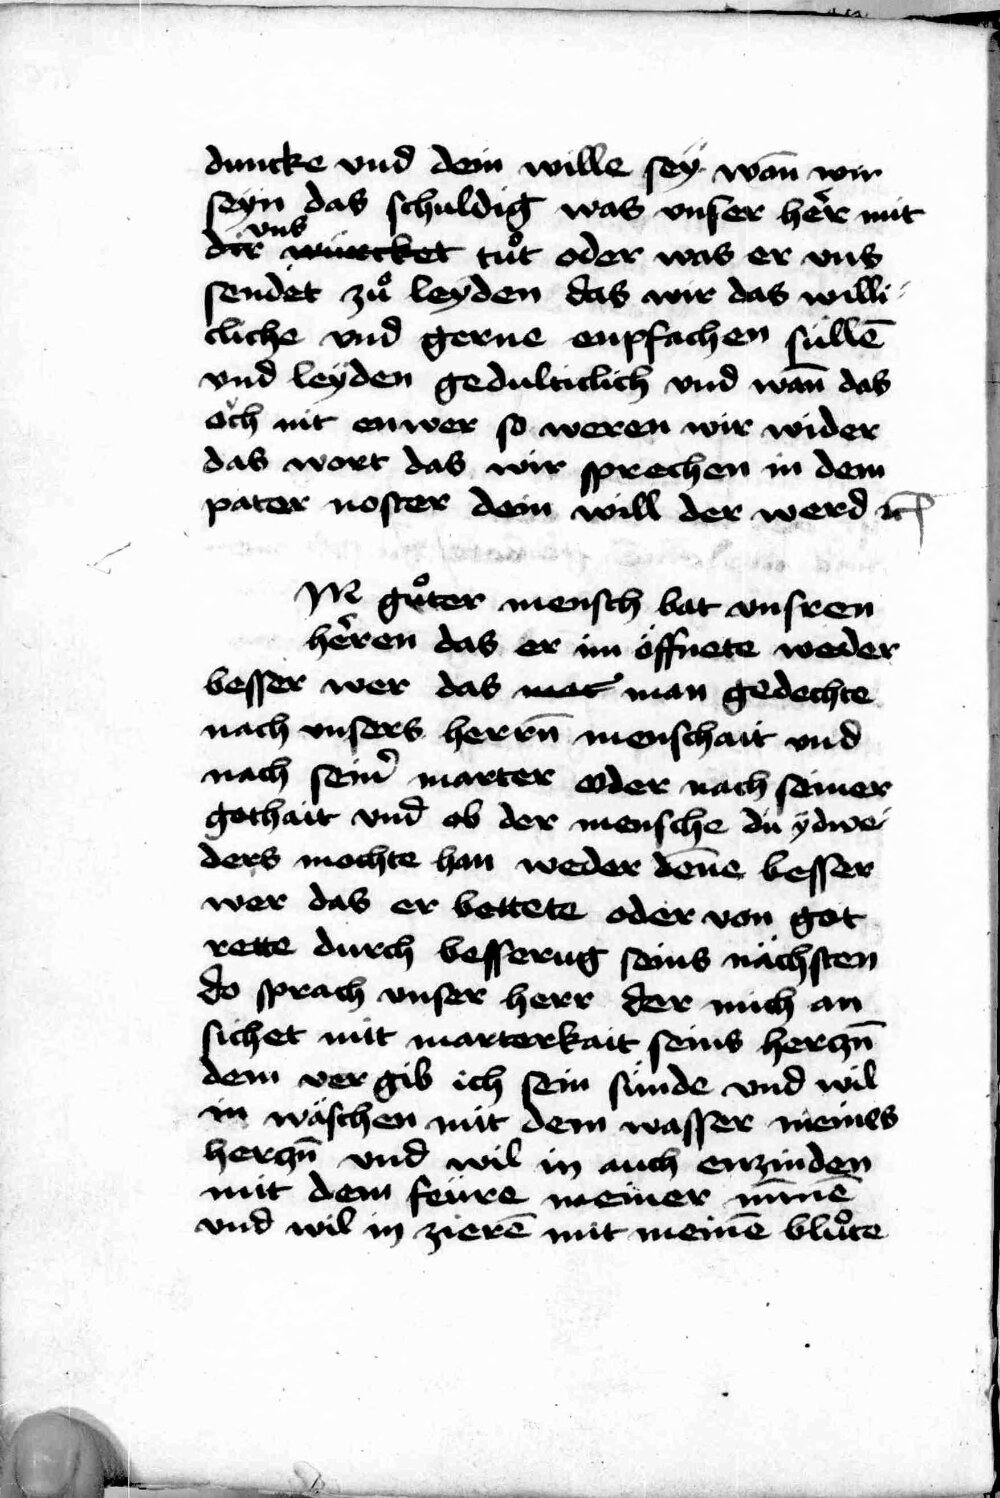 duncke vnd dein wille sey wan̄ wir
seyn das schuldig was vnser her̄ mit
vns
dir würcket tuͦt oder was er vns
sendet zuͦ leyden das wir das willi-
cliche vnd gerne enpfachen süllē
vnd leyden gedulticlich vnd wan̄ das
och nit enwer so weren wir wider
das wort das wir sprechen in dem
pater noster dein will der werd ꝛc
IN guͦter mensch bat vnsren
herren das er im öffnete weder
besser wer das mot man gedechte
nach vnsers herrn̄ menschait vnd
nach seinͥ marter oder nach seiner
gothait vnd ob der mensche dü ydwe-
ders mochte han weder den̄e besser
wer das er bettete oder von got
rette durch besserug seins nächsten
do sprach vnser herr der mich an
sichet mit marterkait seins herczn̄
dem vergib ich sein sünde vnd wil
in wäschen mit dem wasser meines
herczn̄ vnd wil in auch enzinden
mit dem feüre meiner min̄ē
vnd wil in zierē mit meinē bluͦte